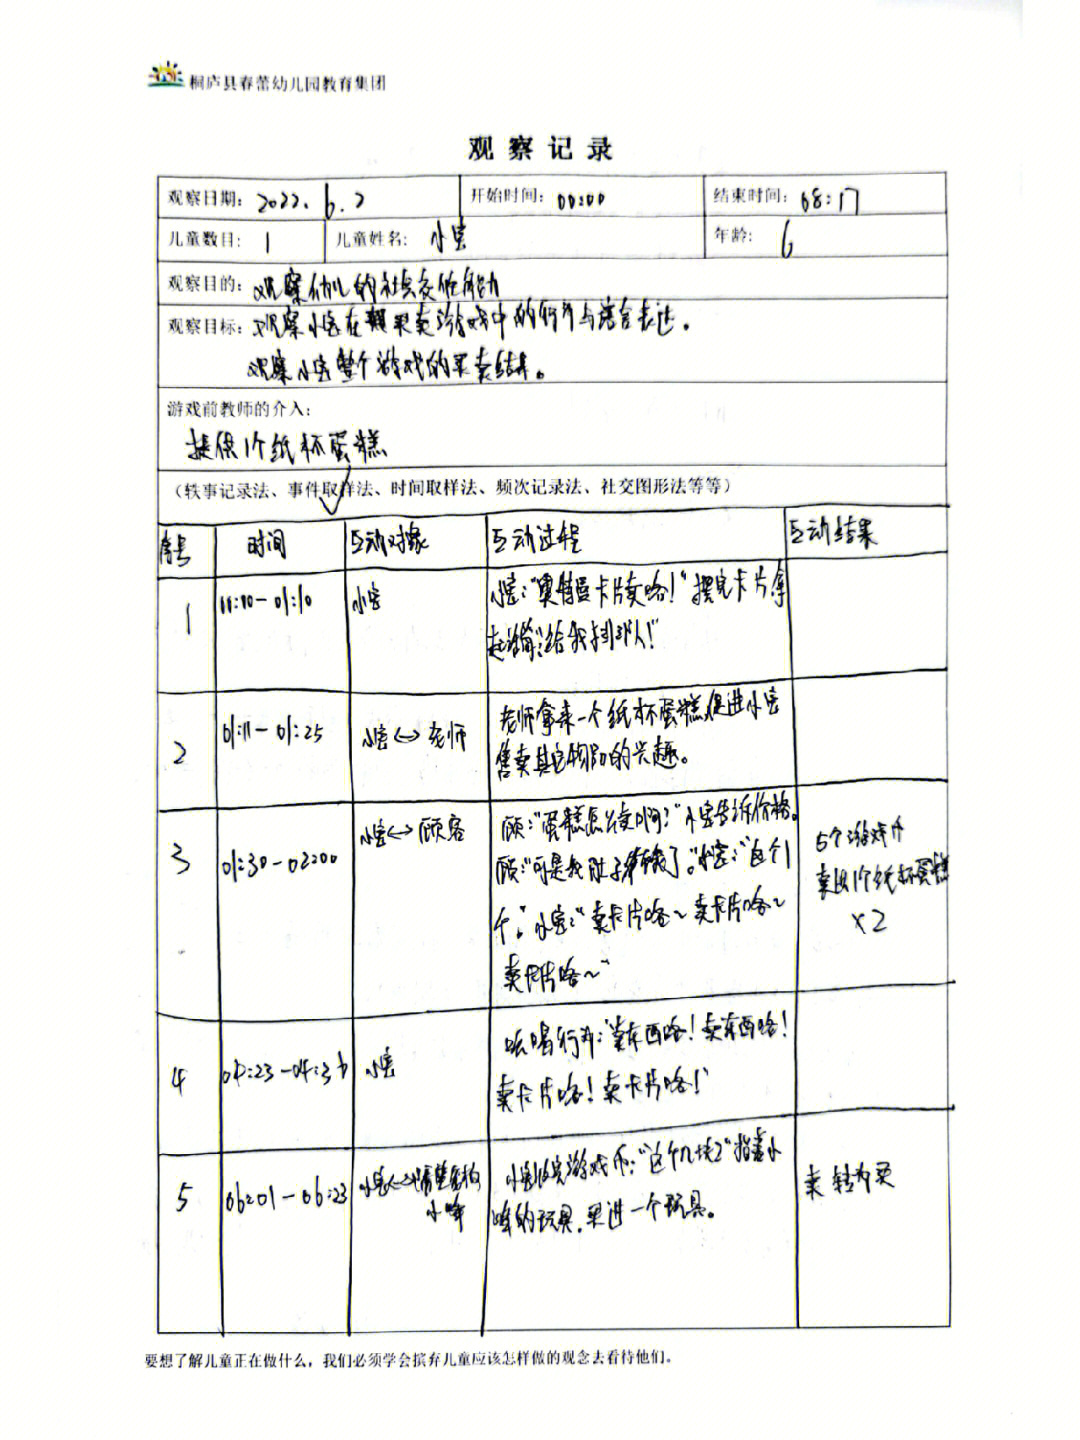 桐庐县春蕾幼儿园教育集团
观察记录
观察日期: 2022.6.2 开始时间: 00:00 结束时间: 08:17
儿童数目: 1 儿童姓名: 小宝 年龄: 6
观察目的: 观察幼儿的社会交往能力
观察目标: 观察小宝在买卖游戏中的行为与语言表达。
观察小宝整个游戏的买卖结果。
游戏前教师的介入:
提供1个纸杯蛋糕
(轶事记录法、事件取样法、时间取样法、频次记录法、社交图形法等等)
序号 时间 互动对象 互动过程 互动结果
1 00:00-01:10 小宝 小宝:“奥特曼卡片卖咯!”摆完卡片拿
起 “给我排队!”
2 01:11-01:25 小宝↔老师 老师拿来一个纸杯蛋糕,促进小宝
售卖其它物品的兴趣。
3 01:30-02:00 小宝↔顾客 顾:“蛋糕怎么卖啊?”小宝告诉价格。
顾:“可是我肚子 饿了。”小宝:“这个1
个。”小宝:“卖卡片咯~卖卡片咯~
卖卡片咯~”
5个游戏币
卖出1个纸杯蛋糕
×2
4 04:23-04:36 小宝 吆喝行为:“卖东西咯!卖东西咯!
卖卡片咯!卖卡片咯!”
5 06:01-06:23 小宝↔ 小峰 小宝收完游戏币:“这个几块?”指着小
峰的玩具,买进一个玩具。
卖转为买
要想了解儿童正在做什么,我们必须学会摈弃儿童应该怎样做的观念去看待他们。